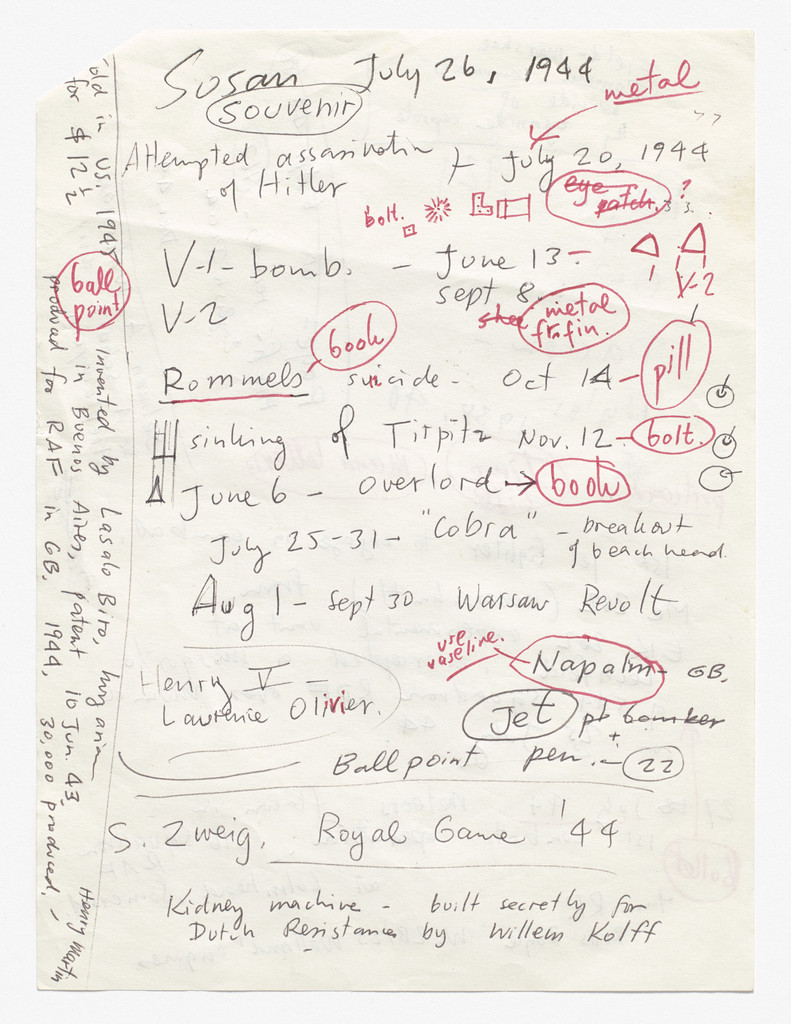 Susan July 26, 1944
souvenir
metal
Attempted assasination
of Hitler
July 20, 1944
bolt.
eye
patch.
?
V-1 - bomb. - June 13 -
sept 8.
V-2
V-2
metal
book
Rommels suicide - Oct 14 - pill
sinking of Tirpitz Nov. 12 - bolt.
June 6 - overlord → book
July 25-31 - "Cobra" - breakout
of beach head.
Aug 1 - sept 30 Warsaw Revolt
use
vaseline.
Napalm - GB,
Henry V -
Laurence Olivier.
Jet
Ballpoint pen. - 22
S. Zweig, Royal Game '44
Kidney machine - built secretly for
Dutch Resistance by Willem Kolff
old in US. 194
for $ 12 1/2
ball
point
Invented by Lasalo Biro, hungarian
in Buenos Aires, patent 10 Jun. 43,
produced for RAF in GB. 1944, 30,000 produced, -
Henry Martin